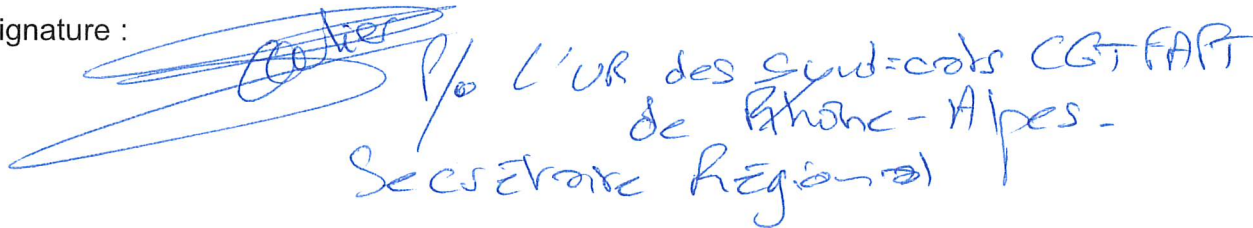 ignature :
P/o L'UR des syndicats CGT FAPT
de Rhône-Alpes-
Secrétaire Régional